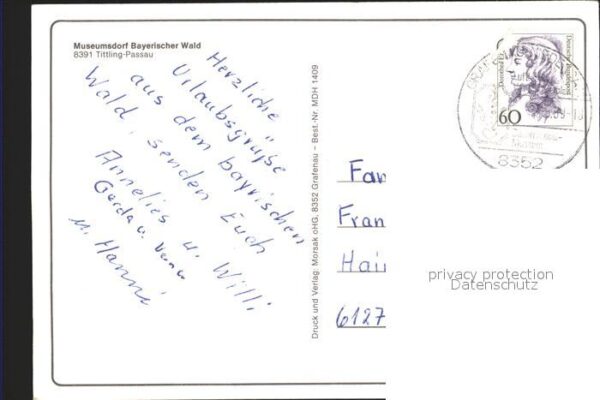 Museumsdorf Bayerischer Wald
8391 Tittling-Passau
Herzliche
Urlaubsgrüße
aus dem bayrischen
Wald, senden Euch
Annelies u. Willi
Gerda u.
u. Hanni
Druck und Verlag: Morsak oHG, 8352 Grafenau – Best.-Nr. MDH 1409
60
Deutsche Bundespost
8352
Fam
Fran
Hain
6127
privacy protection
Datenschutz